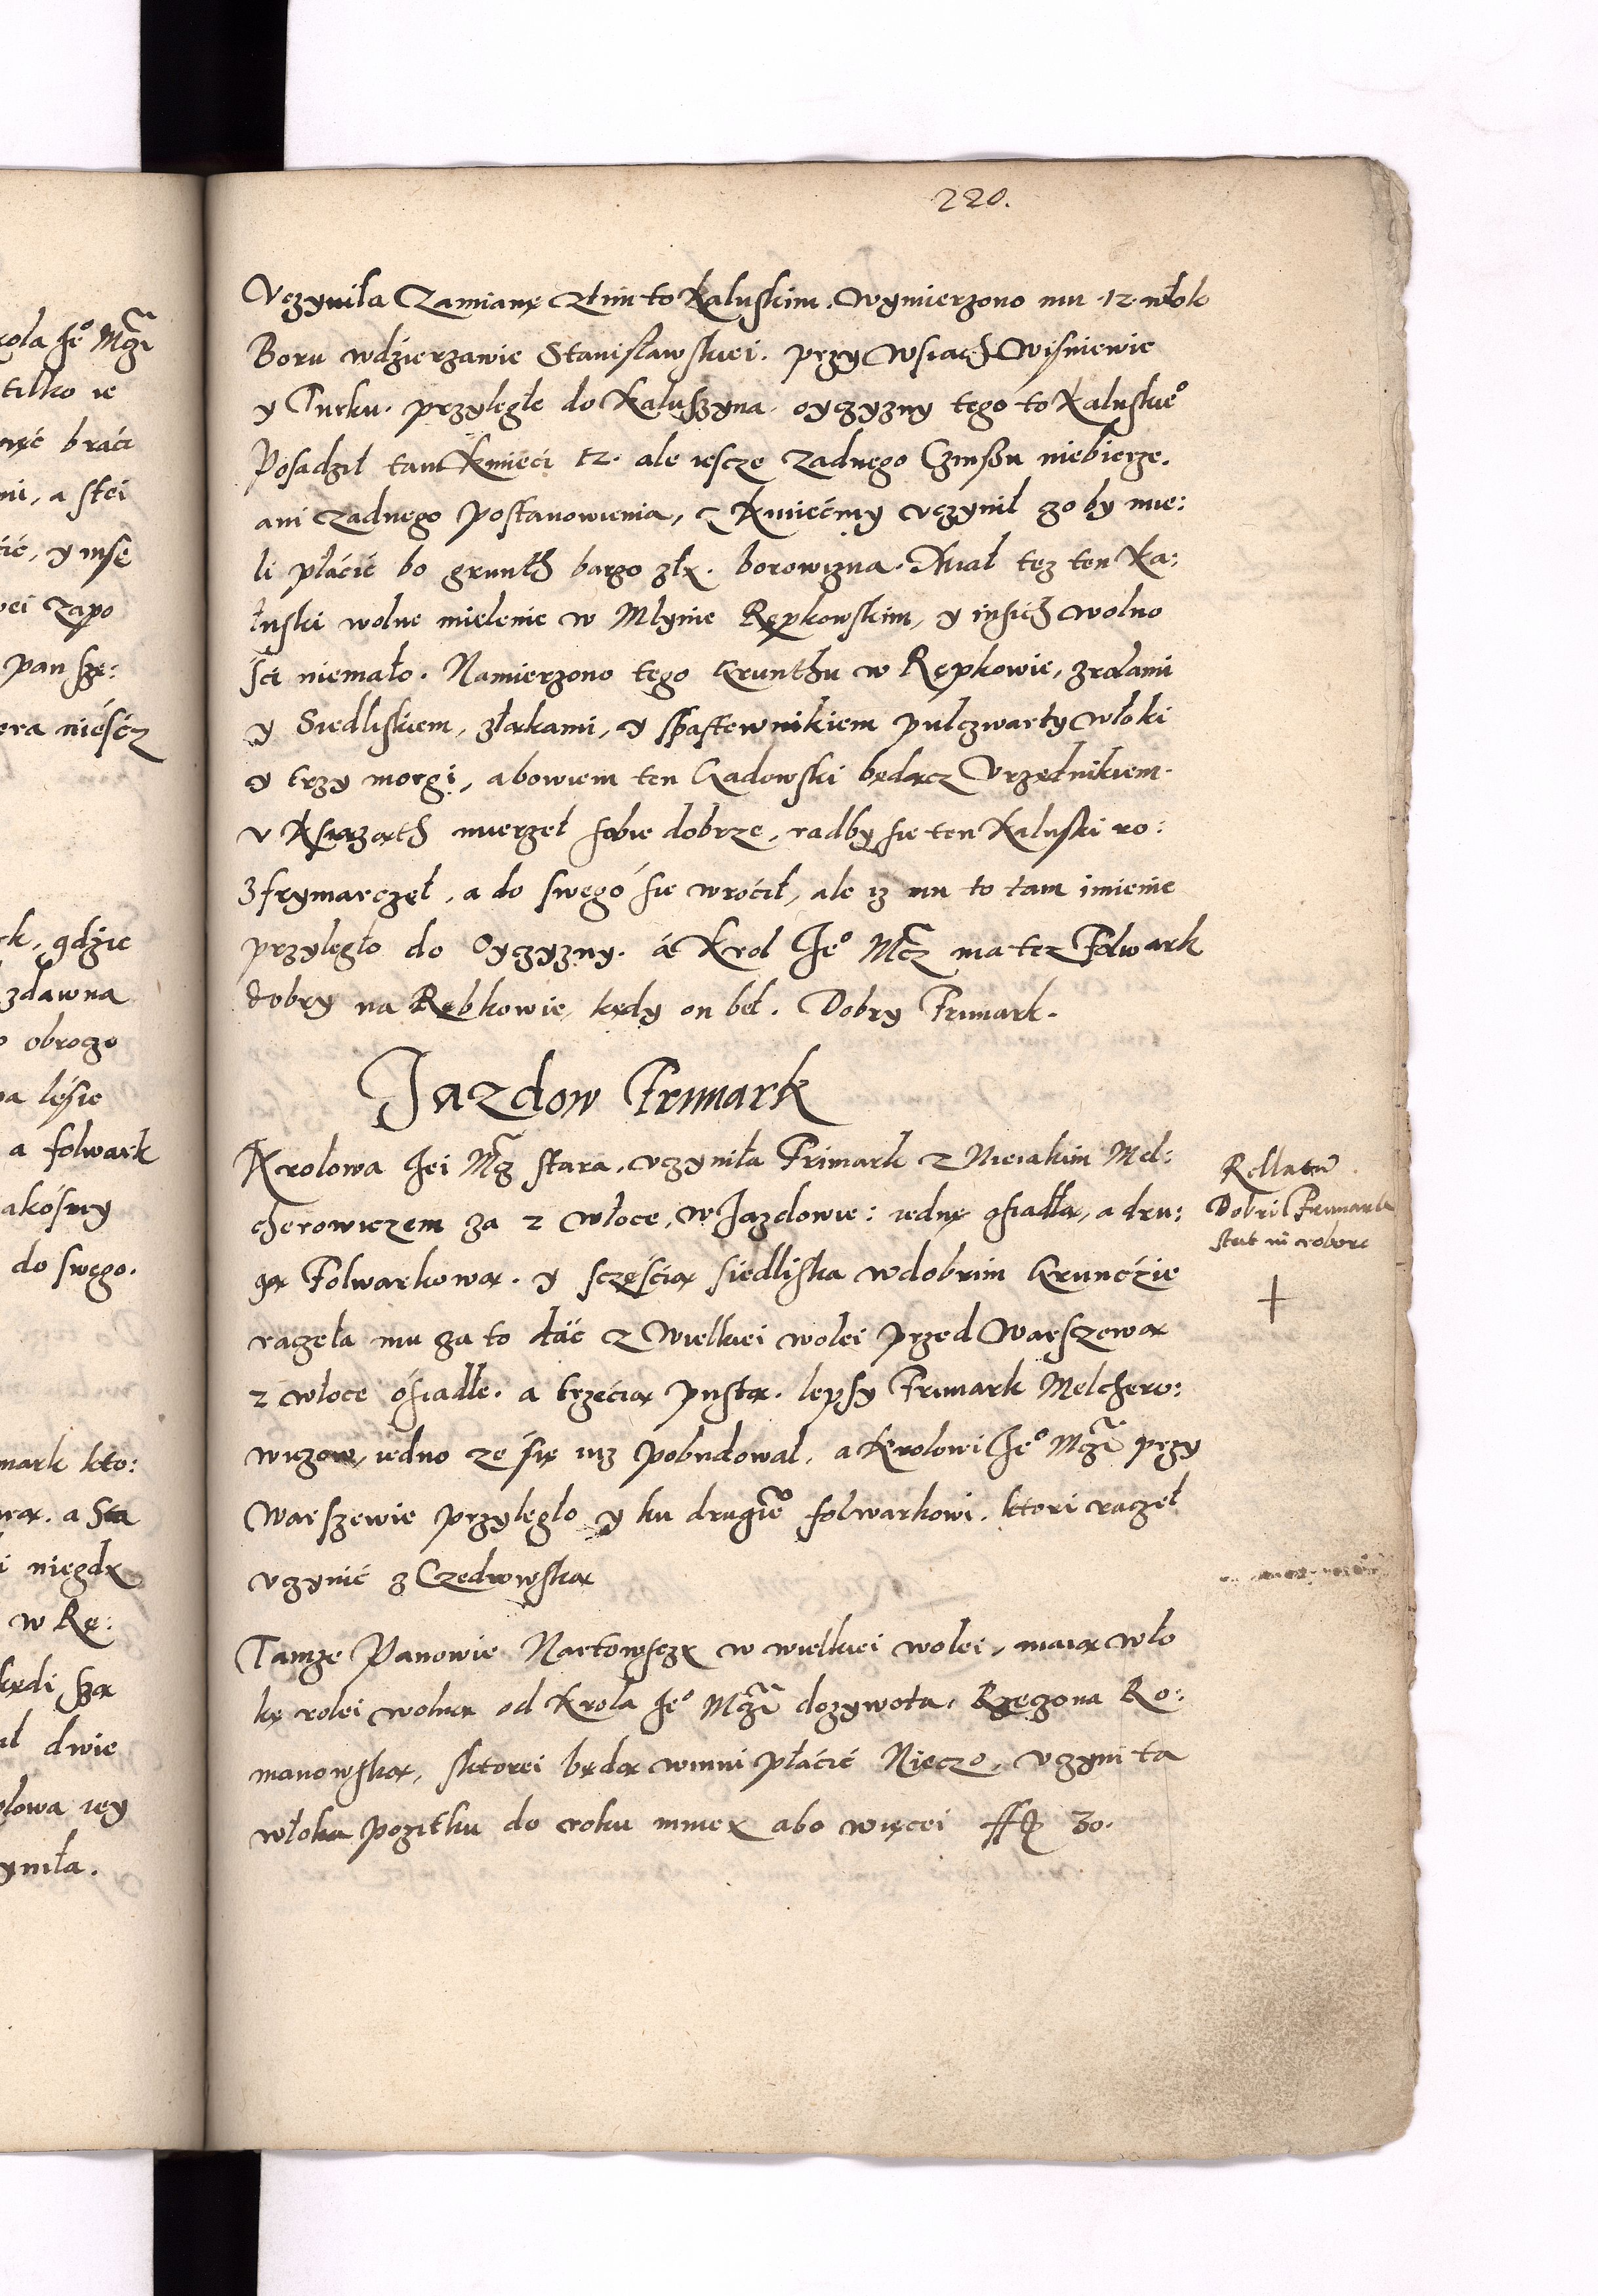 220.
Vczyniła Zamianę ztimto Kałuskim. wymierzono mu 12 włok
Boru wdzierzawie Stanisławskiei. przy wsiach Wisniewie
y Turku. przyległe do Kałuszyna. oyczyzny tego to Kałuskie°
Posadził tam Kmieci 12. ale iescze zadnego Czinszu niebierze.
ani zadnego postanowienia, z Kmiećmy vczynił czo by mie:
li płácić bo grunth barzo zły. borowizna. Miał tez ten Ka:
łuski wolne mielenie w Młynie Rępkowskim, y inszich wolno
ści niemało. Namierzono tego Grunthu w Rępkowie, zrolami
y Siedliskiem, złąkami, y spastewnikiem pułczwarty włoki
y trzy morgi, abowiem ten Gadowski będącz Vrzędnikiem
v Ksiąząth mierzeł sobie dobrze, radby sie ten Kałuski ro:
zfrymarczeł, a do swego sie wróćił, ale iz mu to tam imienie
przyległo do Oyczyzny. á Krol Je° Mcz ma tez Folwark
dobry na Rębkowie, kędy on beł. Dobry Frimark.
Jazdow Frimark
Krolowa Jei Mcz stara. vczyniła Frimark z Nieiakim Mel:
cherowiczem za 2 włoce, w Jazdowie: iednę osiadłą, a dru:
gą Folwarkową. y sczęścią siedliska wdobrim Grunćzie
raczeła mu za to dáć z Wielkiei wolei przed Warszewą
2 włoce ósiadłe. a trzecią pustą. lepszy Frimark Melchero:
wiczow, iedno ze się iuz pobudował, a Krolowi Je° Mczi przy
Warszewie przyległo y ku drugie° folwarkowi. ktori raczeł
vczynić z Czedrowską
Tamze Panowie Nartowsczy w wielkiei wolei, maią wło
kę rolei wolną od Krola Je° Mczi dozywota, Rzęczoną Ro:
manowską, sktorei będą winni płáćić Nięczo, vczyni ta
włoka pozitku do roku mniey abo więcei ff 30.
Rellatũ
Dobri Frimark
stat in robore
+